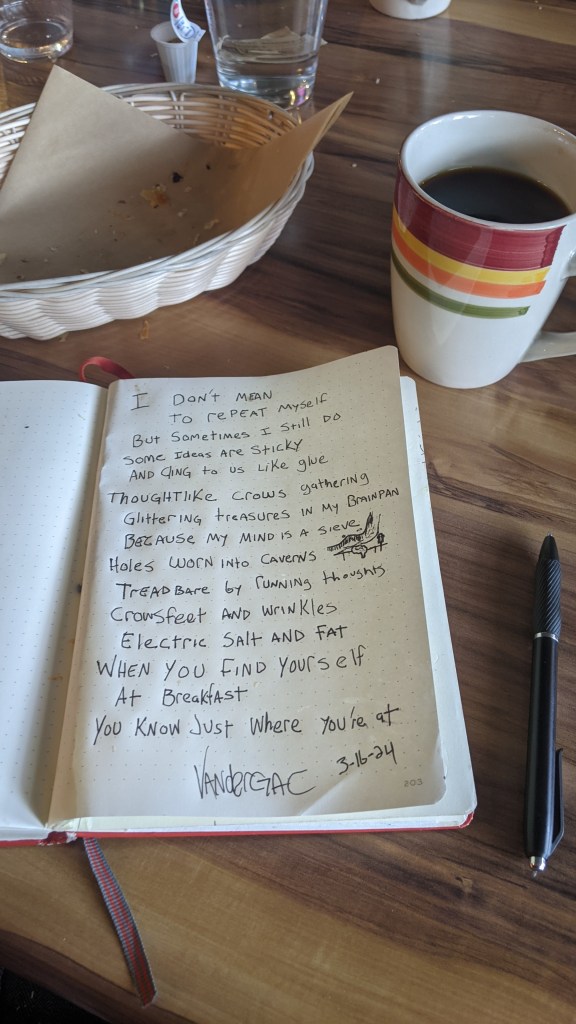 I DON'T MEAN
TO rEPEAT Myself
But Sometimes I Still DO
Some Ideas Are Sticky
AND CliNG to us Like glue
ThoughTlike Crows gathering
Glittering treasures IN my BrAINPAN
BECAUSE MY MIND IS A Sieve
Holes WORN INto CAVERNS
TREADBARE by running thoughts
Crowsfeet AND WriNKles
Electric Salt AND FAT
WHEN YOU FIND Yourself
At BreakfAst
YOU KNOW Just Where You're at
VANderGAC 3-16-24
203